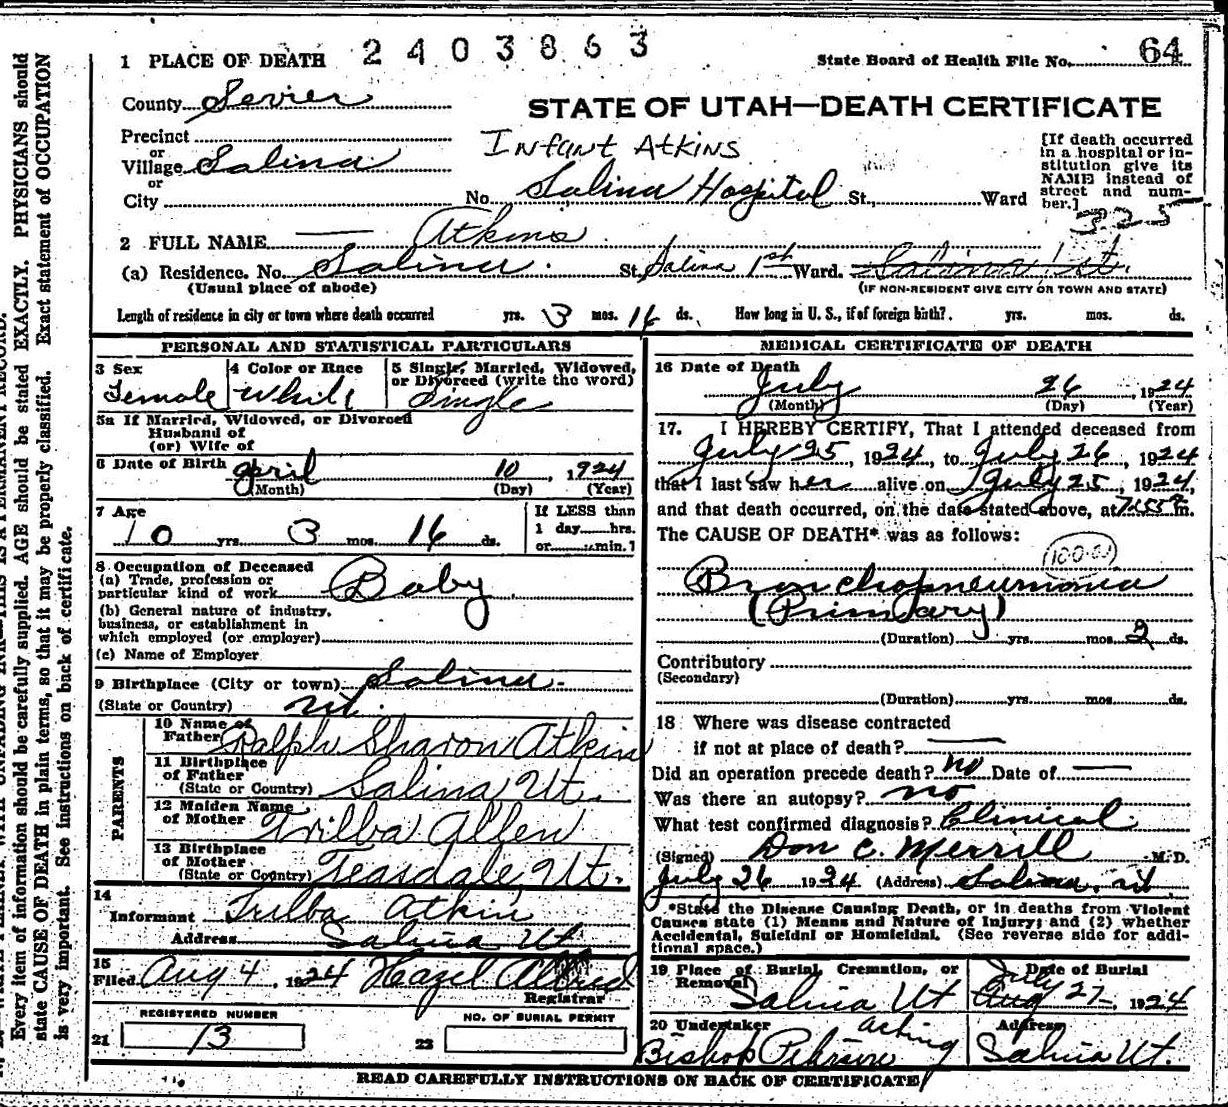 1 PLACE OF DEATH 2403863 State Board of Health File No. 64
County Sevier
STATE OF UTAH—DEATH CERTIFICATE
Precinct
or
Village Salina
or
City
Infant Atkins
No. Salina Hospital St., Ward
[If death occurred
in a hospital or in-
stitution give its
NAME instead of
street and num-
ber.]
325
2 FULL NAME — Atkins
(a) Residence. No. Salina. St. Salina 1st Ward. Salina 1st.
(Usual place of abode) (IF NON-RESIDENT GIVE CITY OR TOWN AND STATE)
Length of residence in city or town where death occurred yrs. 3 mos. 16 ds. How long in U. S., if of foreign birth? yrs. mos. ds.
PERSONAL AND STATISTICAL PARTICULARS
3 Sex
Female
4 Color or Race
White
5 Single, Married, Widowed,
or Divorced (write the word)
Single
5a If Married, Widowed, or Divorced
Husband of
(or) Wife of
6 Date of Birth April 10, 1924
(Month) (Day) (Year)
7 Age
0 yrs. 3 mos. 16 ds.
If LESS than
1 day hrs.
or min.]
8 Occupation of Deceased
(a) Trade, profession or
particular kind of work Baby
(b) General nature of industry,
business, or establishment in
which employed (or employer)
(c) Name of Employer
9 Birthplace (City or town) Salina
(State or Country) Ut.
PARENTS
10 Name of
Father Ralph Sharon Atkin
11 Birthplace
of Father
(State or Country) Salina Ut.
12 Maiden Name
of Mother Trilba Allen
13 Birthplace
of Mother
(State or Country) Teasdale, Ut.
14
Informant Trilba Atkin
Address Salina Ut
15
Filed Aug 4, 1924 Hazel Allred
Registrar
REGISTERED NUMBER
21 13
NO. OF BURIAL PERMIT
22
MEDICAL CERTIFICATE OF DEATH
16 Date of Death
July 26, 1924
(Month) (Day) (Year)
17. I HEREBY CERTIFY, That I attended deceased from
July 25, 1924, to July 26, 1924
that I last saw her alive on July 25, 1924,
and that death occurred, on the date stated above, at m.
The CAUSE OF DEATH* was as follows:
Bronchopneumonia
(Primary)
(Duration) yrs. mos. 2 ds.
Contributory
(Secondary)
(Duration) yrs. mos. ds.
18 Where was disease contracted
if not at place of death? —
Did an operation precede death? no Date of —
Was there an autopsy? no
What test confirmed diagnosis? Clinical
(Signed) Don C. Merrill M.D.
July 26 1924 (Address) Salina, Ut
*State the Disease Causing Death, or in deaths from Violent
Causes state (1) Means and Nature of Injury; and (2) whether
Accidental, Suicidal or Homicidal. (See reverse side for addi-
tional space.)
19 Place of Burial, Cremation, or
Removal
Salina Ut
Date of Burial
July
Aug 27 1924
20 Undertaker acting
Bishop
Address
Salina Ut.
READ CAREFULLY INSTRUCTIONS ON BACK OF CERTIFICATE
Every item of information should be carefully supplied. AGE should be stated EXACTLY. PHYSICIANS should
state CAUSE OF DEATH in plain terms, so that it may be properly classified. Exact statement of OCCUPATION
is very important. See instructions on back of certificate.